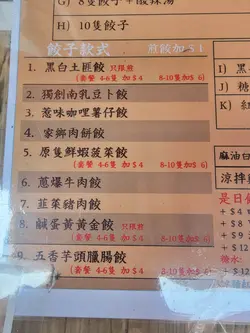 G) 8隻餃子 + 酸辣湯
H) 10隻餃子
餃子款式 煎餃加$1
1. 黑白土匪餃 只限煎
(套餐 4-6隻 加$4 8-10隻加$6)
2. 獨創南乳豆卜餃
3. 惹味咖哩薯仔餃
4. 家鄉肉餅餃
5. 原隻鮮蝦菠菜餃
(套餐 4-6隻 加$4 8-10隻加$6)
6. 蔥爆牛肉餃
7. 韮菜豬肉餃
8. 鹹蛋黃黃金餃 只限煎
(套餐 4-6隻 加$4 8-10隻加$6)
9. 五香芋頭臘腸餃
(套餐 4-6隻 加$4 8-10隻加$6)
I) 黑
J) 糖
K)
麻油白
涼拌
是日
+$4
+$8
+$9
+$12
糖水:
+$
+$12